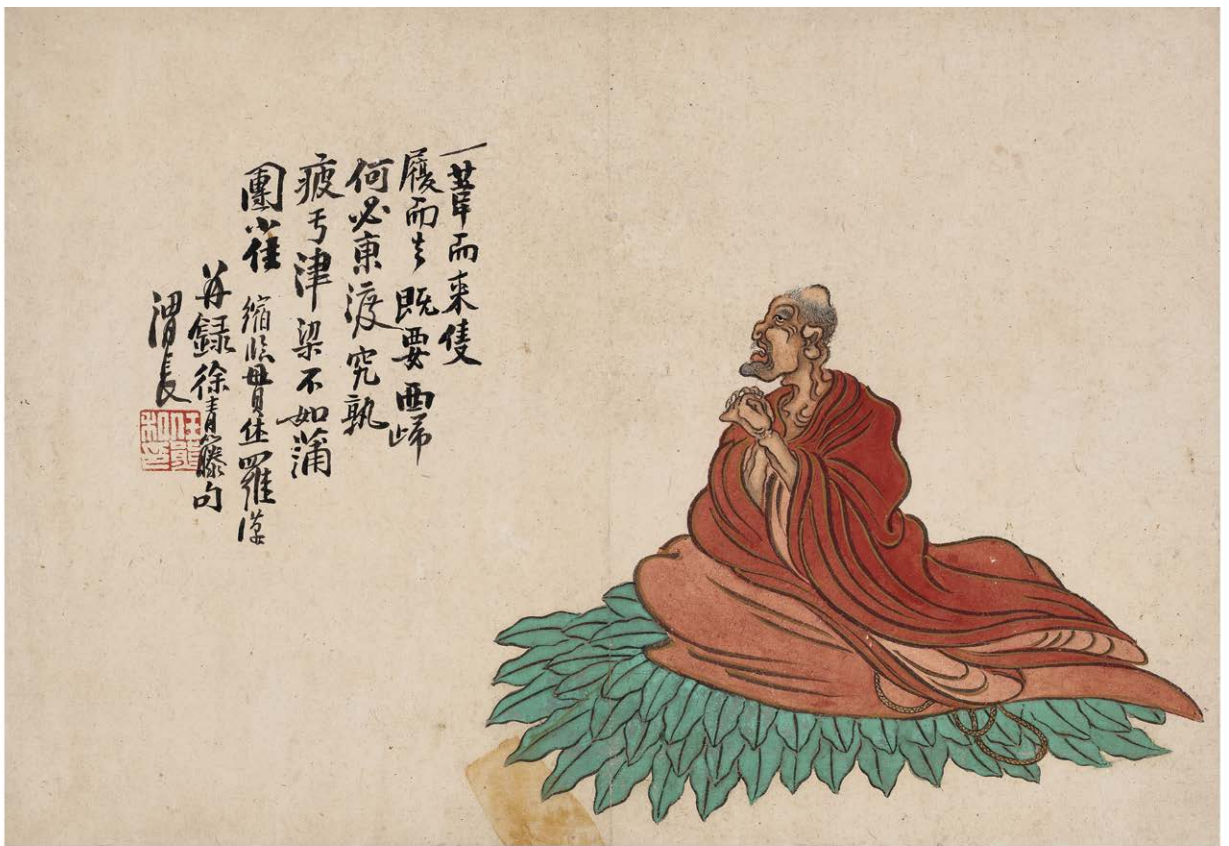 一葦而來隻
履而去既要西歸
何必東渡究孰
疲亐津梁不如蒲
團小佳 縮臨貫休羅漢
并録徐青藤句
渭長
任熊私印